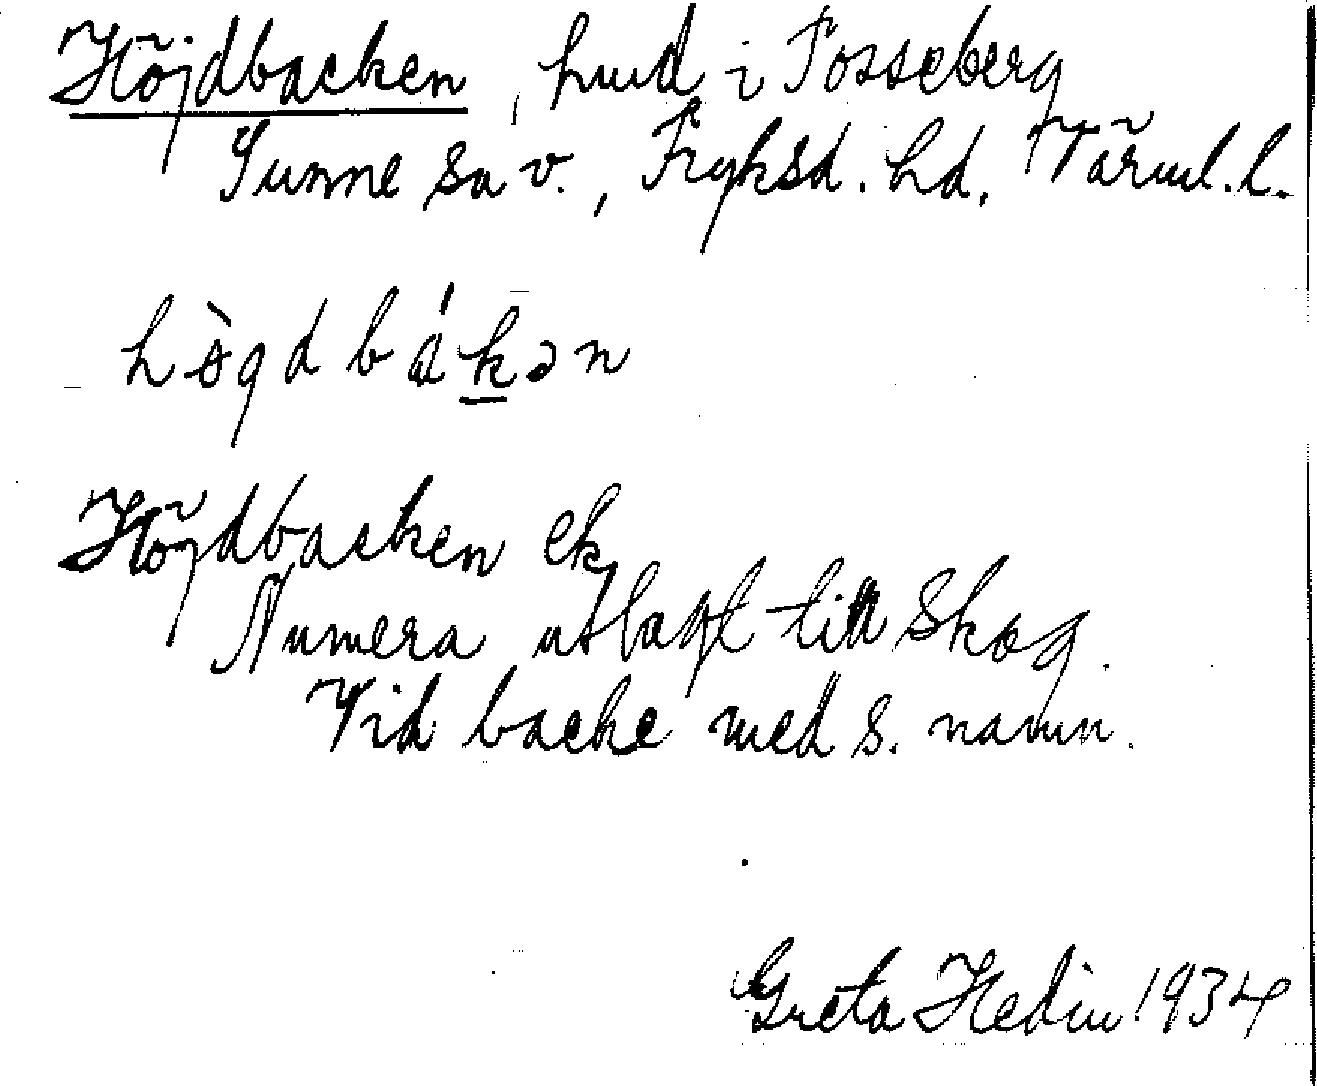 Höjdbacken, hmd i Tosseberg
Sunne sn v., Fryksd. hd. Värml.l.
Höjdbacken ek
Numera utlagt till skog.
Vid backe med s. namn.
Greta Hedin 1934